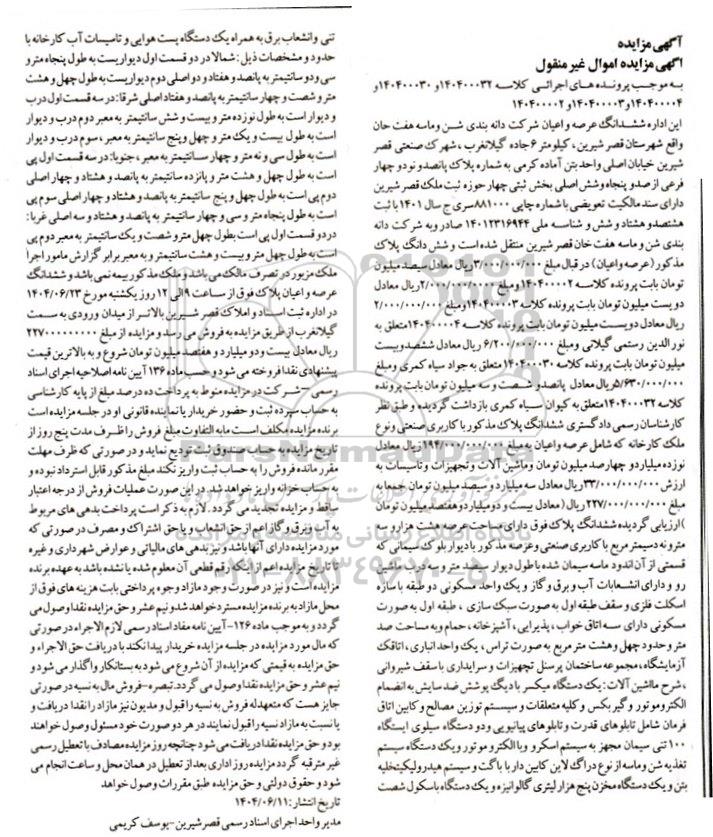 آگهی مزایده
اگهی مزایده اموال غیر منقول
به موجب پرونده های اجرائی کلاسه ۱۴۰۴۰۰۰۳۲و ۱۴۰۴۰۰۰۳۰ و
۱۴۰۴۰۰۰۰۴ و۱۴۰۴۰۰۰۰۳ و ۱۴۰۴۰۰۰۰۲
این اداره ششدانگ عرصه و اعیان شرکت دانه بندی شن وماسه هفت خان
واقع شهرستان قصر شیرین ، کیلومتر ۶ جاده گیلانغرب ، شهرک صنعتی قصر
شیرین خیابان اصلی واحد بتن آماده کرمی به شماره پلاک پانصدو نود و چهار
فرعی از صدو پنجاه وشش اصلی بخش ثبتی چهار حوزه ثبت ملک قصر شیرین
دارای سند مالکیت تعویضی با شماره چاپی ۸۸۱۰۰۰سری ج سال ۱۴۰۱ با ثبت
هشتصدو هشتاد و شش و شناسه ملی ۱۴۰۱۲۳۱۶۹۴۴ صادر وبه شرکت دانه
بندی شن و ماسه هفت خان قصر شیرین منتقل شده است و شش دانگ پلاک
مذکور (عرصه واعیان ) در قبال مبلغ ۳/۰۰۰/۰۰۰/۰۰۰ریال معادل سیصد میلیون
تومان بابت پرونده کلاسه ۱۴۰۴۰۰۰۰۲ ومبلغ ۲/۰۰۰/۰۰۰/۰۰۰ریال معادل
دویست میلیون تومان بابت پرونده کلاسه ۱۴۰۴۰۰۰۰۳ومبلغ ۲/۰۰۰/۰۰۰/۰۰۰
ریال معادل دویست میلیون تومان بابت پرونده کلاسه ۱۴۰۴۰۰۰۰۴متعلق به
نورالدین رستمی گیلانی ومبلغ ۶/۲۰۰/۰۰۰/۰۰۰ ریال معادل ششصدوبیست
میلیون تومان بابت پرونده کلاسه ۱۴۰۴۰۰۰۳۰متعلق به جواد سیاه کمری ومبلغ
۵/۶۳۰/۰۰۰/۰۰۰ریال معادل پانصدو شصت و سه میلیون تومان بابت پرونده
کلاسه ۱۴۰۴۰۰۰۳۲متعلق به کیوان سیاه کمری بازداشت گردیده و طبق نظر
کارشناسان رسمی دادگستری ششدانگ پلاک مذکور با کاربری صنعتی ونوع
ملک کارخانه که شامل عرصه واعیان به مبلغ ۱۹۴/۰۰۰/۰۰۰/۰۰۰ریال معادل
نوزده میلیارد و چهارصد میلیون تومان وماشین آلات و تجهیزات و تاسیسات به
ارزش ۳۳/۰۰۰/۰۰۰/۰۰۰ریال معادل سه میلیارد و سیصد میلیون تومان جمعا به
مبلغ ۲۲۷/۰۰۰/۰۰۰/۰۰۰ریال (معادل بیست و دو میلیاردو هفتصد میلیون تومان
)ارزیابی گردیده ششدانگ پلاک فوق دارای مساحت عرصه هشت هزارو سه
مترو نه دسیمتر مربع با کاربری صنعتی وعرصه مذکور با دیوار بلوک سیمانی که
قسمتی از آن اندود ماسه سیمان شده با طول دیوار سیصد متر و سه درب ماشین
رو و دارای انشعابات آب و برق و گاز و یک واحد مسکونی دو طبقه با سازه
اسکلت فلزی و سقف طبقه اول به صورت سبک سازی ، طبقه اول به صورت
مسکونی دارای سه اتاق خواب ، پذیرایی ، آشپزخانه ، حمام وبه مساحت صد
مترو حدود چهل وهشت متر مربع به صورت تراس ، یک واحد انباری ، اتاقک
آزمایشگاه ، مجموعه ساختمان پرسنل تجهیزات و سرایداری با سقف شیروانی
، شرح ماشین آلات : یک دستگاه میکسر با دیگ پوشش ضد سایش به انضمام
الکتروموتور و گیربکس و کلیه متعلقات و سیستم توزین مصالح و کابین اتاق
فرمان شامل تابلوهای قدرت و تابلوهای پیانویی ودو دستگاه سیلوی ایستگاه
۱۰۰ تنی سیمان مجهز به سیستم اسکرو وبا الکترو موتور ویک دستگاه سیستم
تغذیه شن وماسه از نوع دراگ لاین کابین دار با باگت و سیستم هیدرولیکیتخلیه
بتن و یک دستگاه مخزن پنج هزار لیتری گالوانیزه و یک دستگاه باسکول شصت
تنی وانشعاب برق به همراه یک دستگاه پست هوایی و تاسیسات آب کارخانه با
حدود و مشخصات ذیل : شمالا در دو قسمت اول دیواریست به طول پنجاه مترو
سی ودو سانتیمتر به پانصد و هفتاد و دو اصلی دوم دیواریست به طول چهل و هشت
متر و شصت و چهار سانتیمتر به پانصد و هفتاد اصلی شرقا : در سه قسمت اول درب
و دیوار است به طول نوزده متر و بیست و شش سانتیمتر به معبر دوم درب و دیوار
است به طول بیست و یک متر و چهل وپنج سانتیمتر به معبر ، سوم درب و دیوار
است به طول سی و نه متر و چهار سانتیمتر به معبر ، جنوبا : در سه قسمت اول پی
است به طول چهل و هشت متر و پانزده سانتیمتر به پانصد و هشتاد و چهار اصلی
دوم پی است به طول چهل و پنج سانتیمتر به پانصد و هشتاد و چهار اصلی سوم پی
است به طول پنجاه متر و سی و چهار سانتیمتر به پانصد و هشتاد و سه اصلی غربا :
در دو قسمت اول پی است بطول چهل مترو شصت و یک سانتیمتر به معبر دوم پی
است به طول چهل مترو بیست و هشت و به معبر برابر گزارش مامور اجرا
ملک مزبور در تصرف مالک می باشد و ملک مذکور بیمه نمی باشد و ششدانگ
عرصه و اعیان پلاک فوق از ساعت ۹ الی ۱۲ روز یکشنبه مورخ ۱۴۰۴/۰۶/۲۳
در اداره ثبت اسناد و املاک قصر شیرین بالاتر از میدان ورودی به سمت
گیلانغرب از طریق مزایده به فروش می رسد و مزایده از مبلغ ۲۲۷۰۰۰۰۰۰۰۰۰
ریال معادل بیست و دو میلیارد و هفتصد میلیون تومان شروع و به بالاترین قیمت
پیشنهادی نقدا فروخته می شود و حسب ماده ۱۳۶ آیین نامه اصلاحیه اجرای اسناد
رسمی –شرکت در مزایده منوط به پرداخت ده درصد مبلغ از پایه کارشناسی
به حساب سپرده ثبت و حضور خریدار یا نماینده قانونی او در جلسه مزایده است
برنده مزایده مکلف است مابه التفاوت مبلغ فروش را ظرف مدت پنج روز از
تاریخ مزایده به حساب صندوق ثبت تودیع نماید و در صورتی که ظرف مهلت
مقرر مانده فروش را به حساب ثبت واریز نکند مبلغ مذکور قابل استرداد نبوده و
به حساب خزانه واریز خواهد شد. در این صورت عملیات فروش از درجه اعتبار
ساقط و مزایده تجدید می گردد . لازم به ذکر است پرداخت بدهی های مربوط
به آب و برق و گاز اعم از حق انشعاب و یا حق اشتراک و مصرف در صورتی که
مورد مزایده دارای آنها باشد و نیز بدهی های مالیاتی و عوارض شهرداری و غیره
تا تاریخ مزایده اعم از اینکه رقم قطعی آن معلوم شده یا نشده باشد به عهده برنده
مزایده است و نیز در صورت وجود مازاد وجوه پرداختی بابت هزینه های فوق از
محل مازاد به برنده مزایده مسترد خواهد شدو نیم عشر و حق مزایده نقدا وصول می
گردد و به موجب ماده ۱۲۶- آیین نامه مفاد اسناد رسمی لازم الاجراء در صورتی
که مال مورد مزایده در جلسه مزایده خریدار پیدا نکند با دریافت حق الاجراء و
حق مزایده به قیمتی که مزایده از آن شروع می شود به بستانکار واگذار می شود و
نیم عشر و حق مزایده نقدا وصول می گردد. تبصره -فروش مال به نسیه در صورتی
جایز هست که متعهدله فروش به نسیه را قبول و مدیون نیز مازاد را نقدا دریافت و
یا نسبت به مازاد نسیه را قبول نمایند در هر دو صورت خود مسئول وصول خواهند
بود و حق مزایده نقدا دریافت می شود چنانچه روز مزایده مصادف با تعطیل رسمی
غیر مترقبه گردد مزایده روز اداری بعد از تعطیل در همان محل و ساعت انجام می
شود و حقوق دولتی و حق مزایده طبق مقررات وصول خواهد
تاریخ انتشار : ۱۴۰۴/۰۶/۱۱
مدیر واحد اجرای اسناد رسمی قصر شیرین –یوسف کریمی